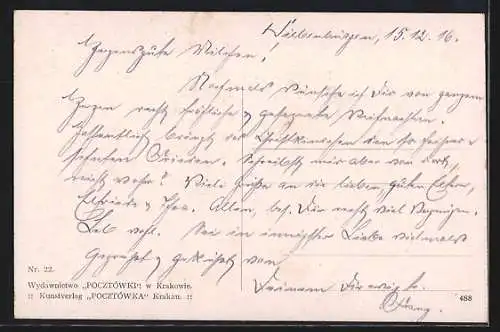 Siebenbürgen, 15.12.16.
Herzensgute Milchen!
Nochmals wünsche ich Dir von ganzem
Herzen recht fröhliche & gesegnete Weihnachten.
Hoffentlich bringt das Christkindchen den so
Frieden. Schreibst mir aber von dort,
nicht wahr? Viele Grüße an die lieben, guten Eltern,
Elfriede & Allen, bes. Dir recht viel Vergnügen.
Leb wohl. Sei in innigster Liebe vielmals
Gegrüßt & geküsst von
Deinem Dir
Franz.
Nr. 22.
Wydawnictwo „POCZTÓWKI“ w Krakowie.
:: Kunstverlag „POCZTÓWKA“ Krakau. ::
488